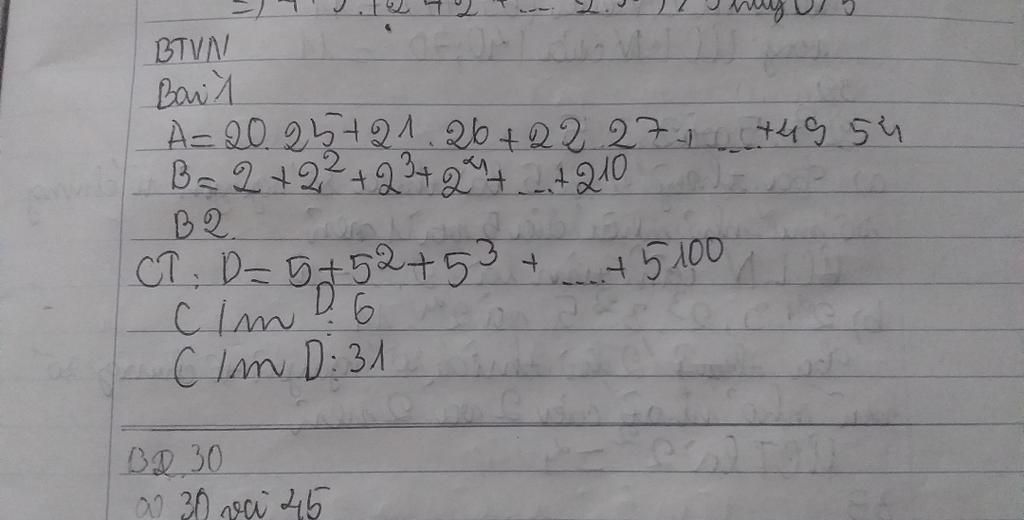 BTVN
Bài 1
A = 20.25 + 21.26 + 22.27 + ... + 49 54
B = 2 + 2² + 2³ + 2⁴ + ... + 2¹⁰
B2.
CT: D = 5 + 5² + 5³ + .... + 5¹⁰⁰
C/m D ⋮ 6
C/m D ⋮ 31
30
a) 30 và 45